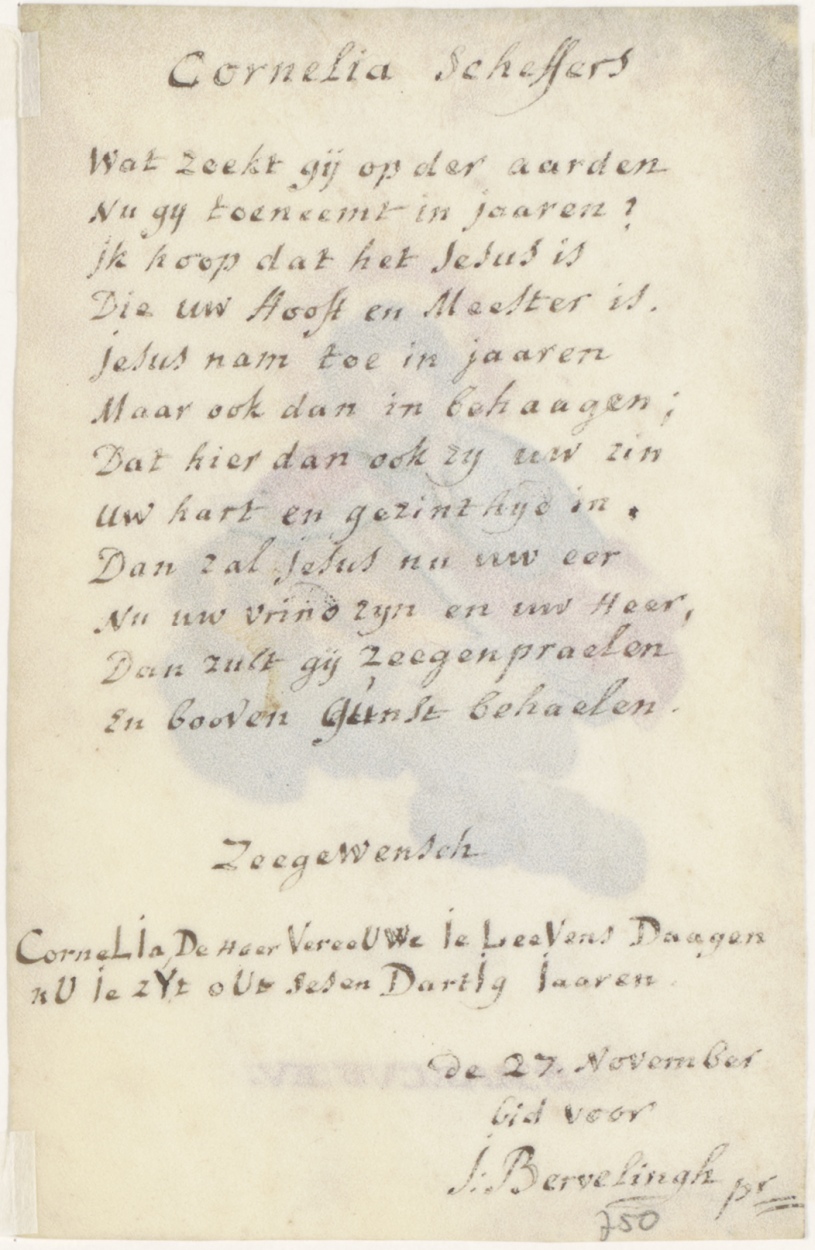 Cornelia Scheffers
Wat zoekt gij op der aarden
Nu gy toeneemt in jaaren?
jk hoop dat het Jesus is
Die uw Hooft en Meester is.
jesus nam toe in jaaren
Maar ook dan in behaagen;
Dat hier dan ook zy uw zin
uw hart en gezinthyd in.
Dan zal jesus nu uw eer
Nu uw vrind zyn en uw Heer,
Dan zult gij zeegenpraelen
En booven gunst behaelen.
Zeegewensch
CorneLIa De Heer VereeUWe Ie LeeVens Daagen
nU Ie zYt oUt sesen DartIg Iaaren.
de 27. November
bid voor
J: Bervelingh pr
750